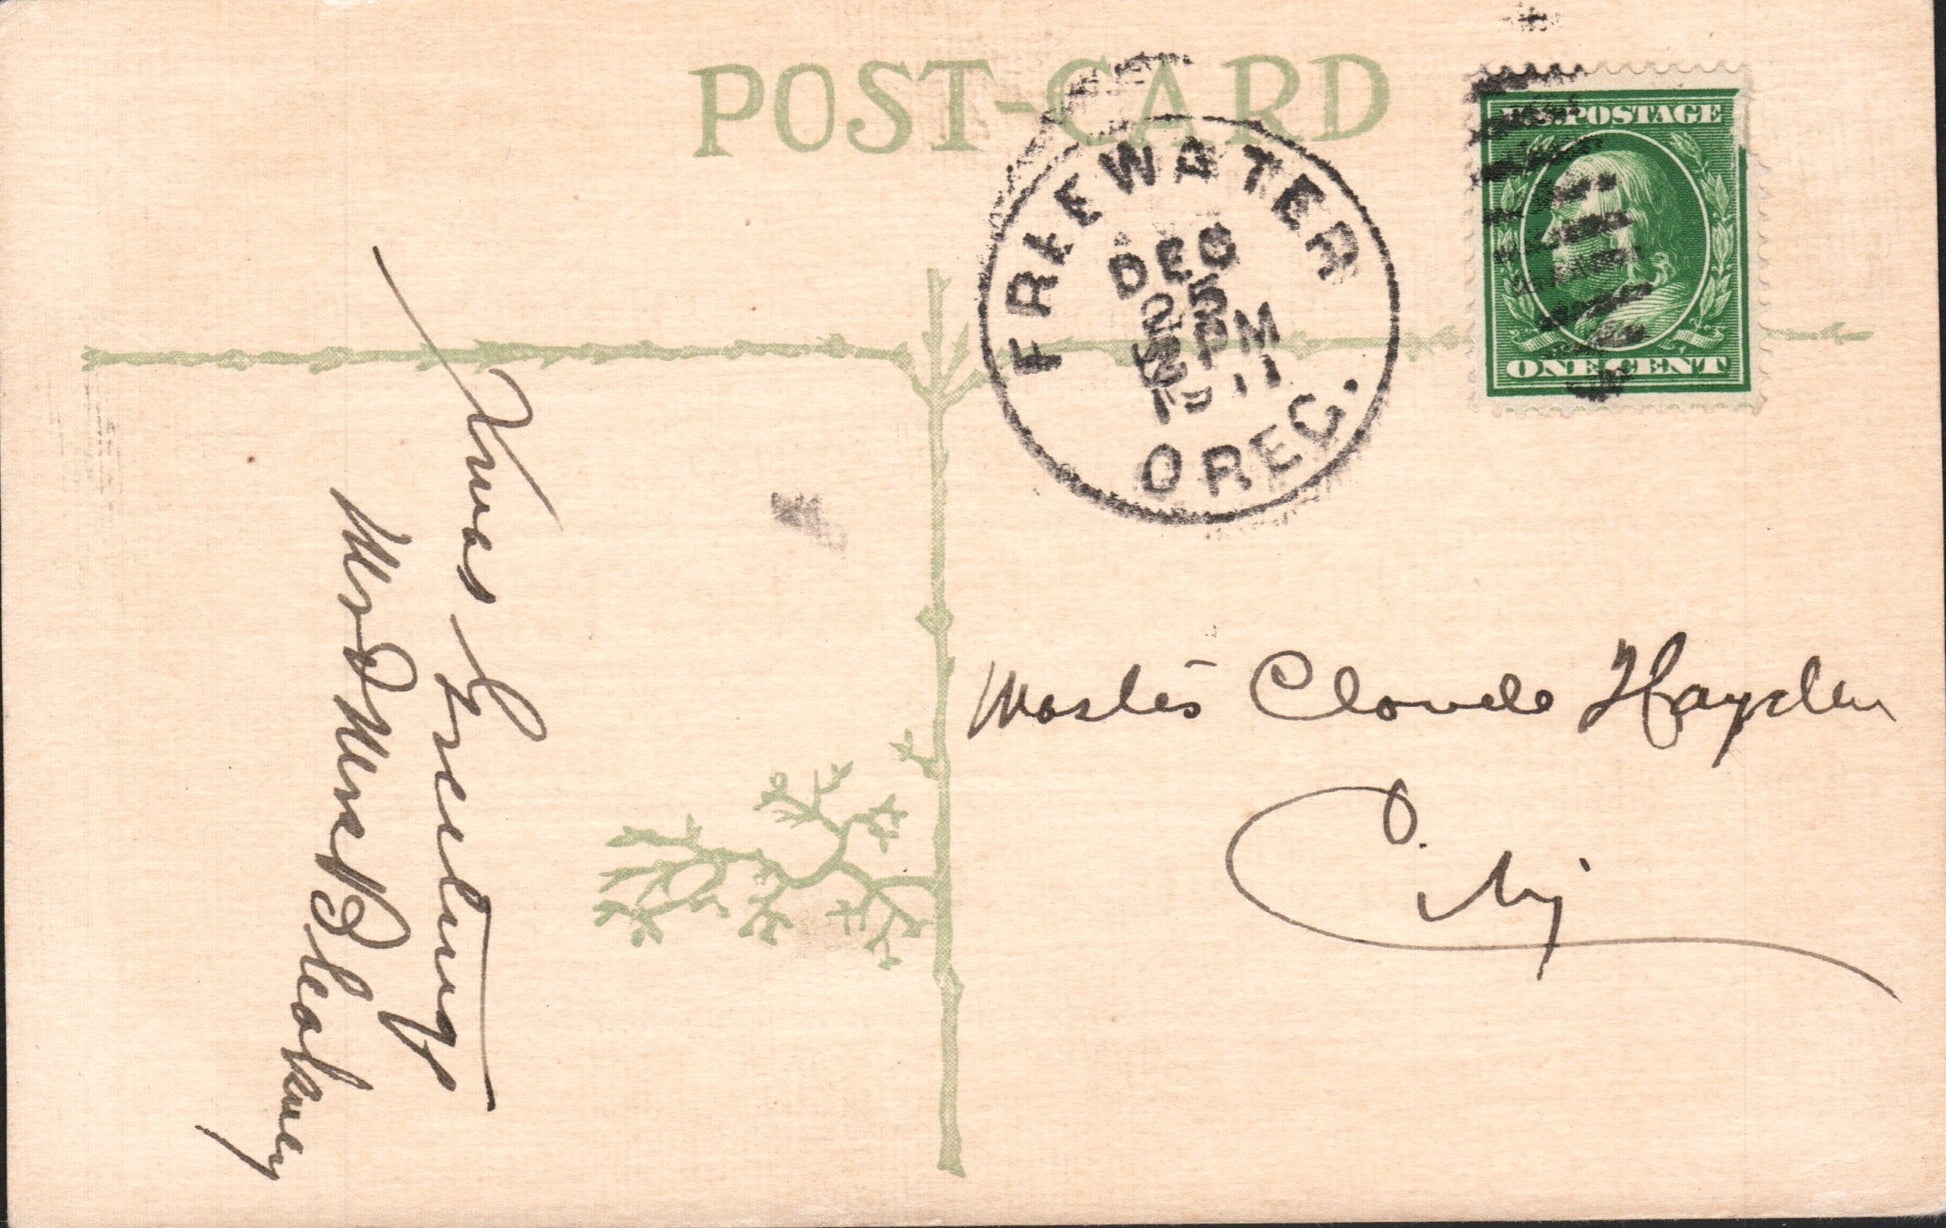 POST-CARD
FREEWATER
DEC
25
PM
11
OREG.
POSTAGE
ONE CENT
Xmas Greetings
Mr & Mrs Bleakney
Master Claude Hayden
City